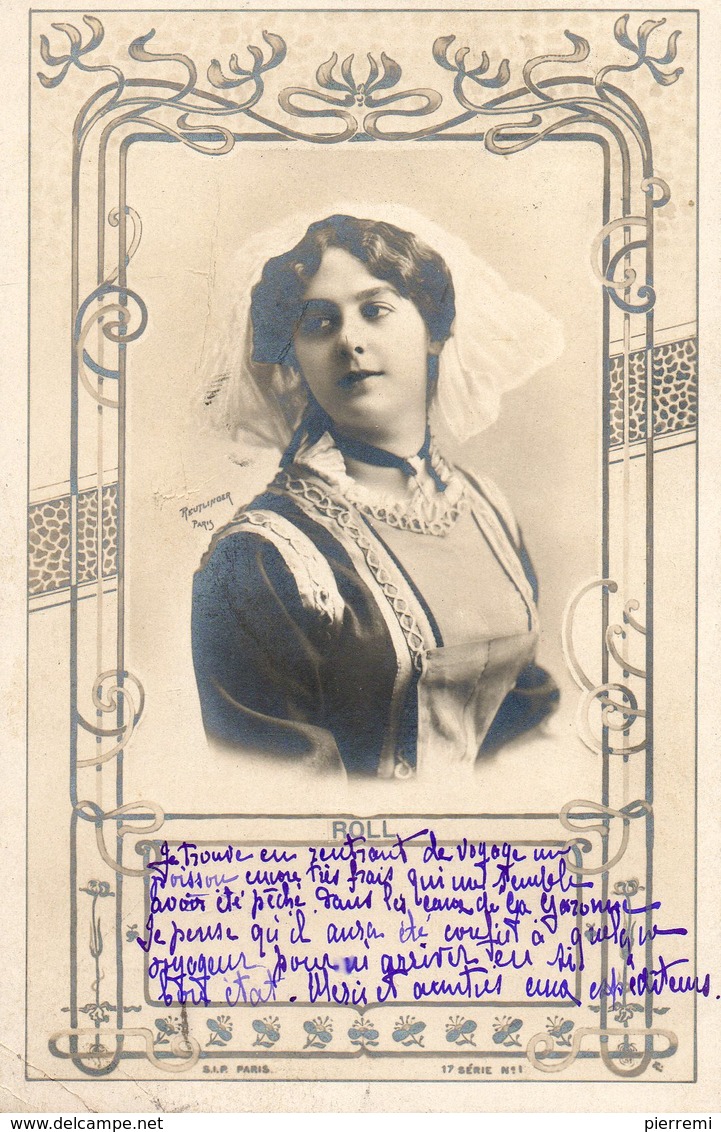 REUTLINGER
PARIS
ROLL
Je trouve en rentrant de voyage un
poisson encore très frais qui me semble
avoir été pêché dans les eaux de la Garonne
Je pense qu'il aura été confié à quelque
voyageur pour m'arriver en si
bon état. Merci et amitiés aux expéditeurs.
S.I.P. PARIS.
17 SÉRIE N° 1
pierremi